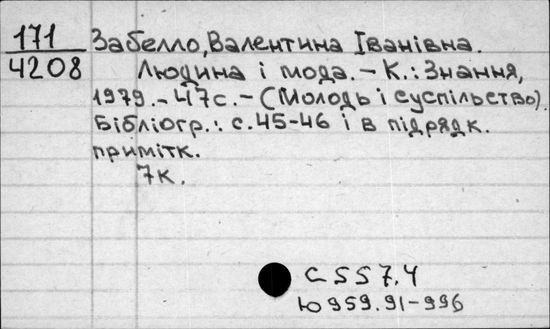 171
4208
Забелло, Валентина Іванівна.
Людина і мода. – К.: Знання,
1979. – 47с. – (Молодь і суспільство).
Бібліогр.: с.45–46 і в підрядк.
примітк.
7к.
С557,4
Ю959.91–996